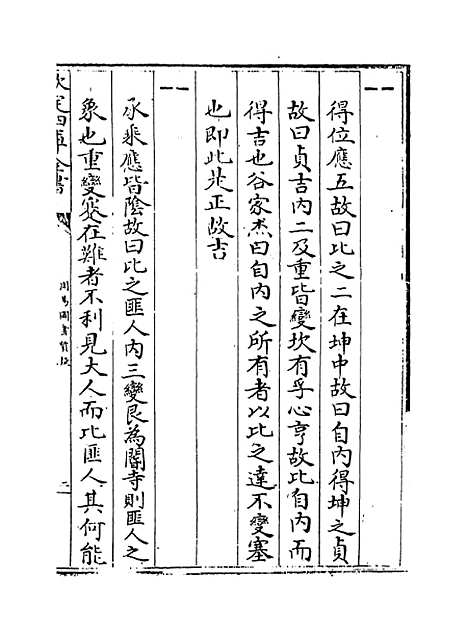 得位應五故曰比之二在坤中故曰自内得坤之貞
故曰貞吉内二及重皆變坎有孚心亨故比自内而
得吉也谷家杰曰自内之所有者以比之達不變塞
也即此是正故吉
承乘應皆陰故曰比之匪人内三變艮為閽寺則匪人之
象也重變蹇在難者不利見大人而比匪人其何能
欽定四庫全書
周易圖書質疑